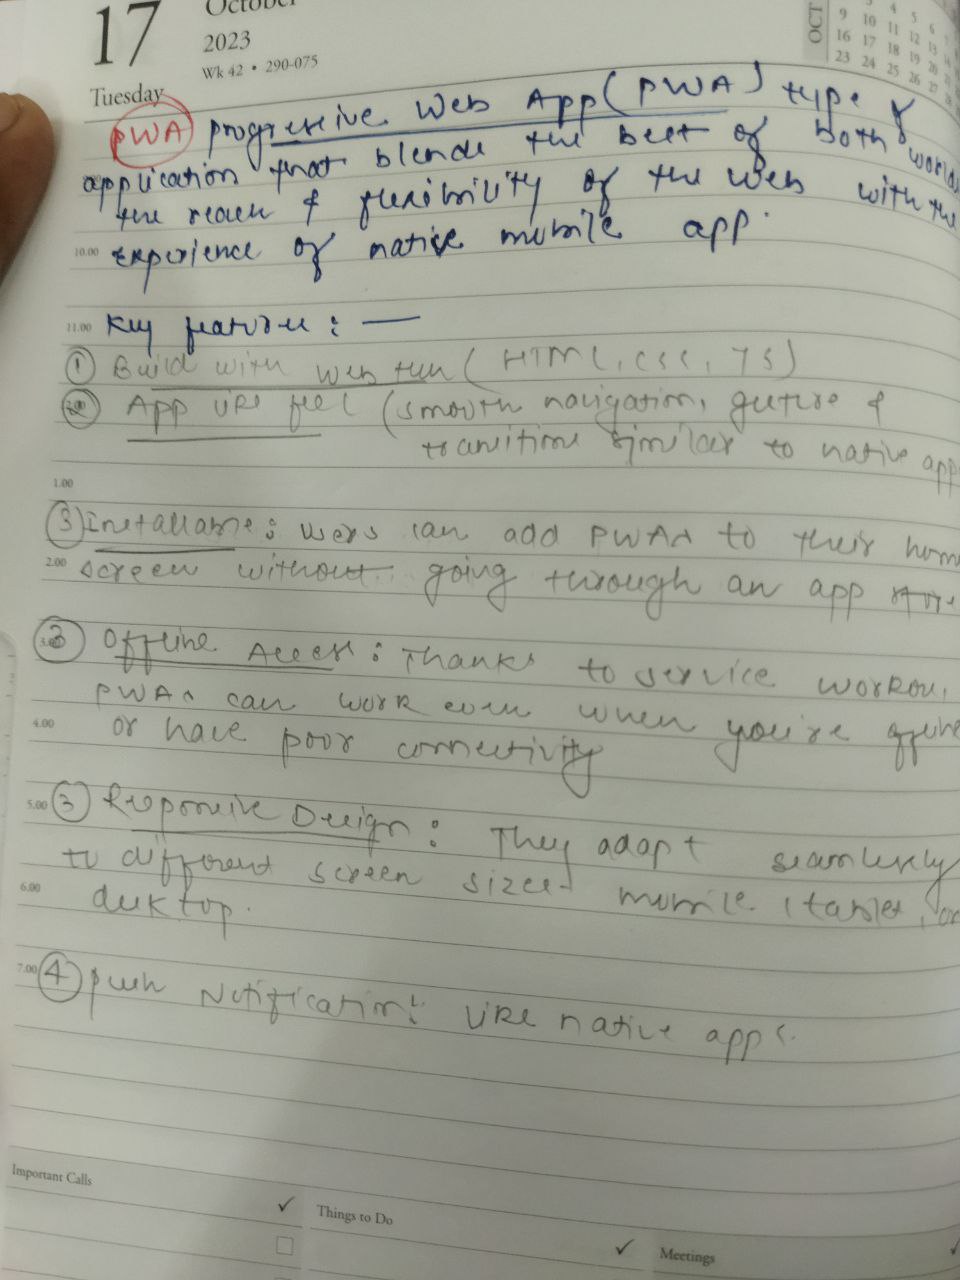 17
October
2023
Wk 42 • 290-075
Tuesday
OCT
9 10 11 12 13
16 17 18 19 20
23 24 25 26 27
PWA progressive Web App (PWA) type of
application that blends the best of both worlds
the reach & flexibility of the web with the
10.00 experience of native mobile app.
11.00 Key features : —
① Build with web tech (HTML, CSS, JS)
② App like feel (smooth navigation, gesture &
transitions similar to native app
1.00
③ Installable : Users can add PWAs to their hom
2.00 screen without going through an app store
3.00 ② Offline Access : Thanks to service
PWAs can work even when you're offline
4.00 or have poor connectivity
5.00 ③ Responsive Design : They adapt seamlessly
to different screen sizes mobile, tablet, or
6.00 desktop.
7.00 ④ push Notification: like native apps.
Important Calls
Things to Do
Meetings